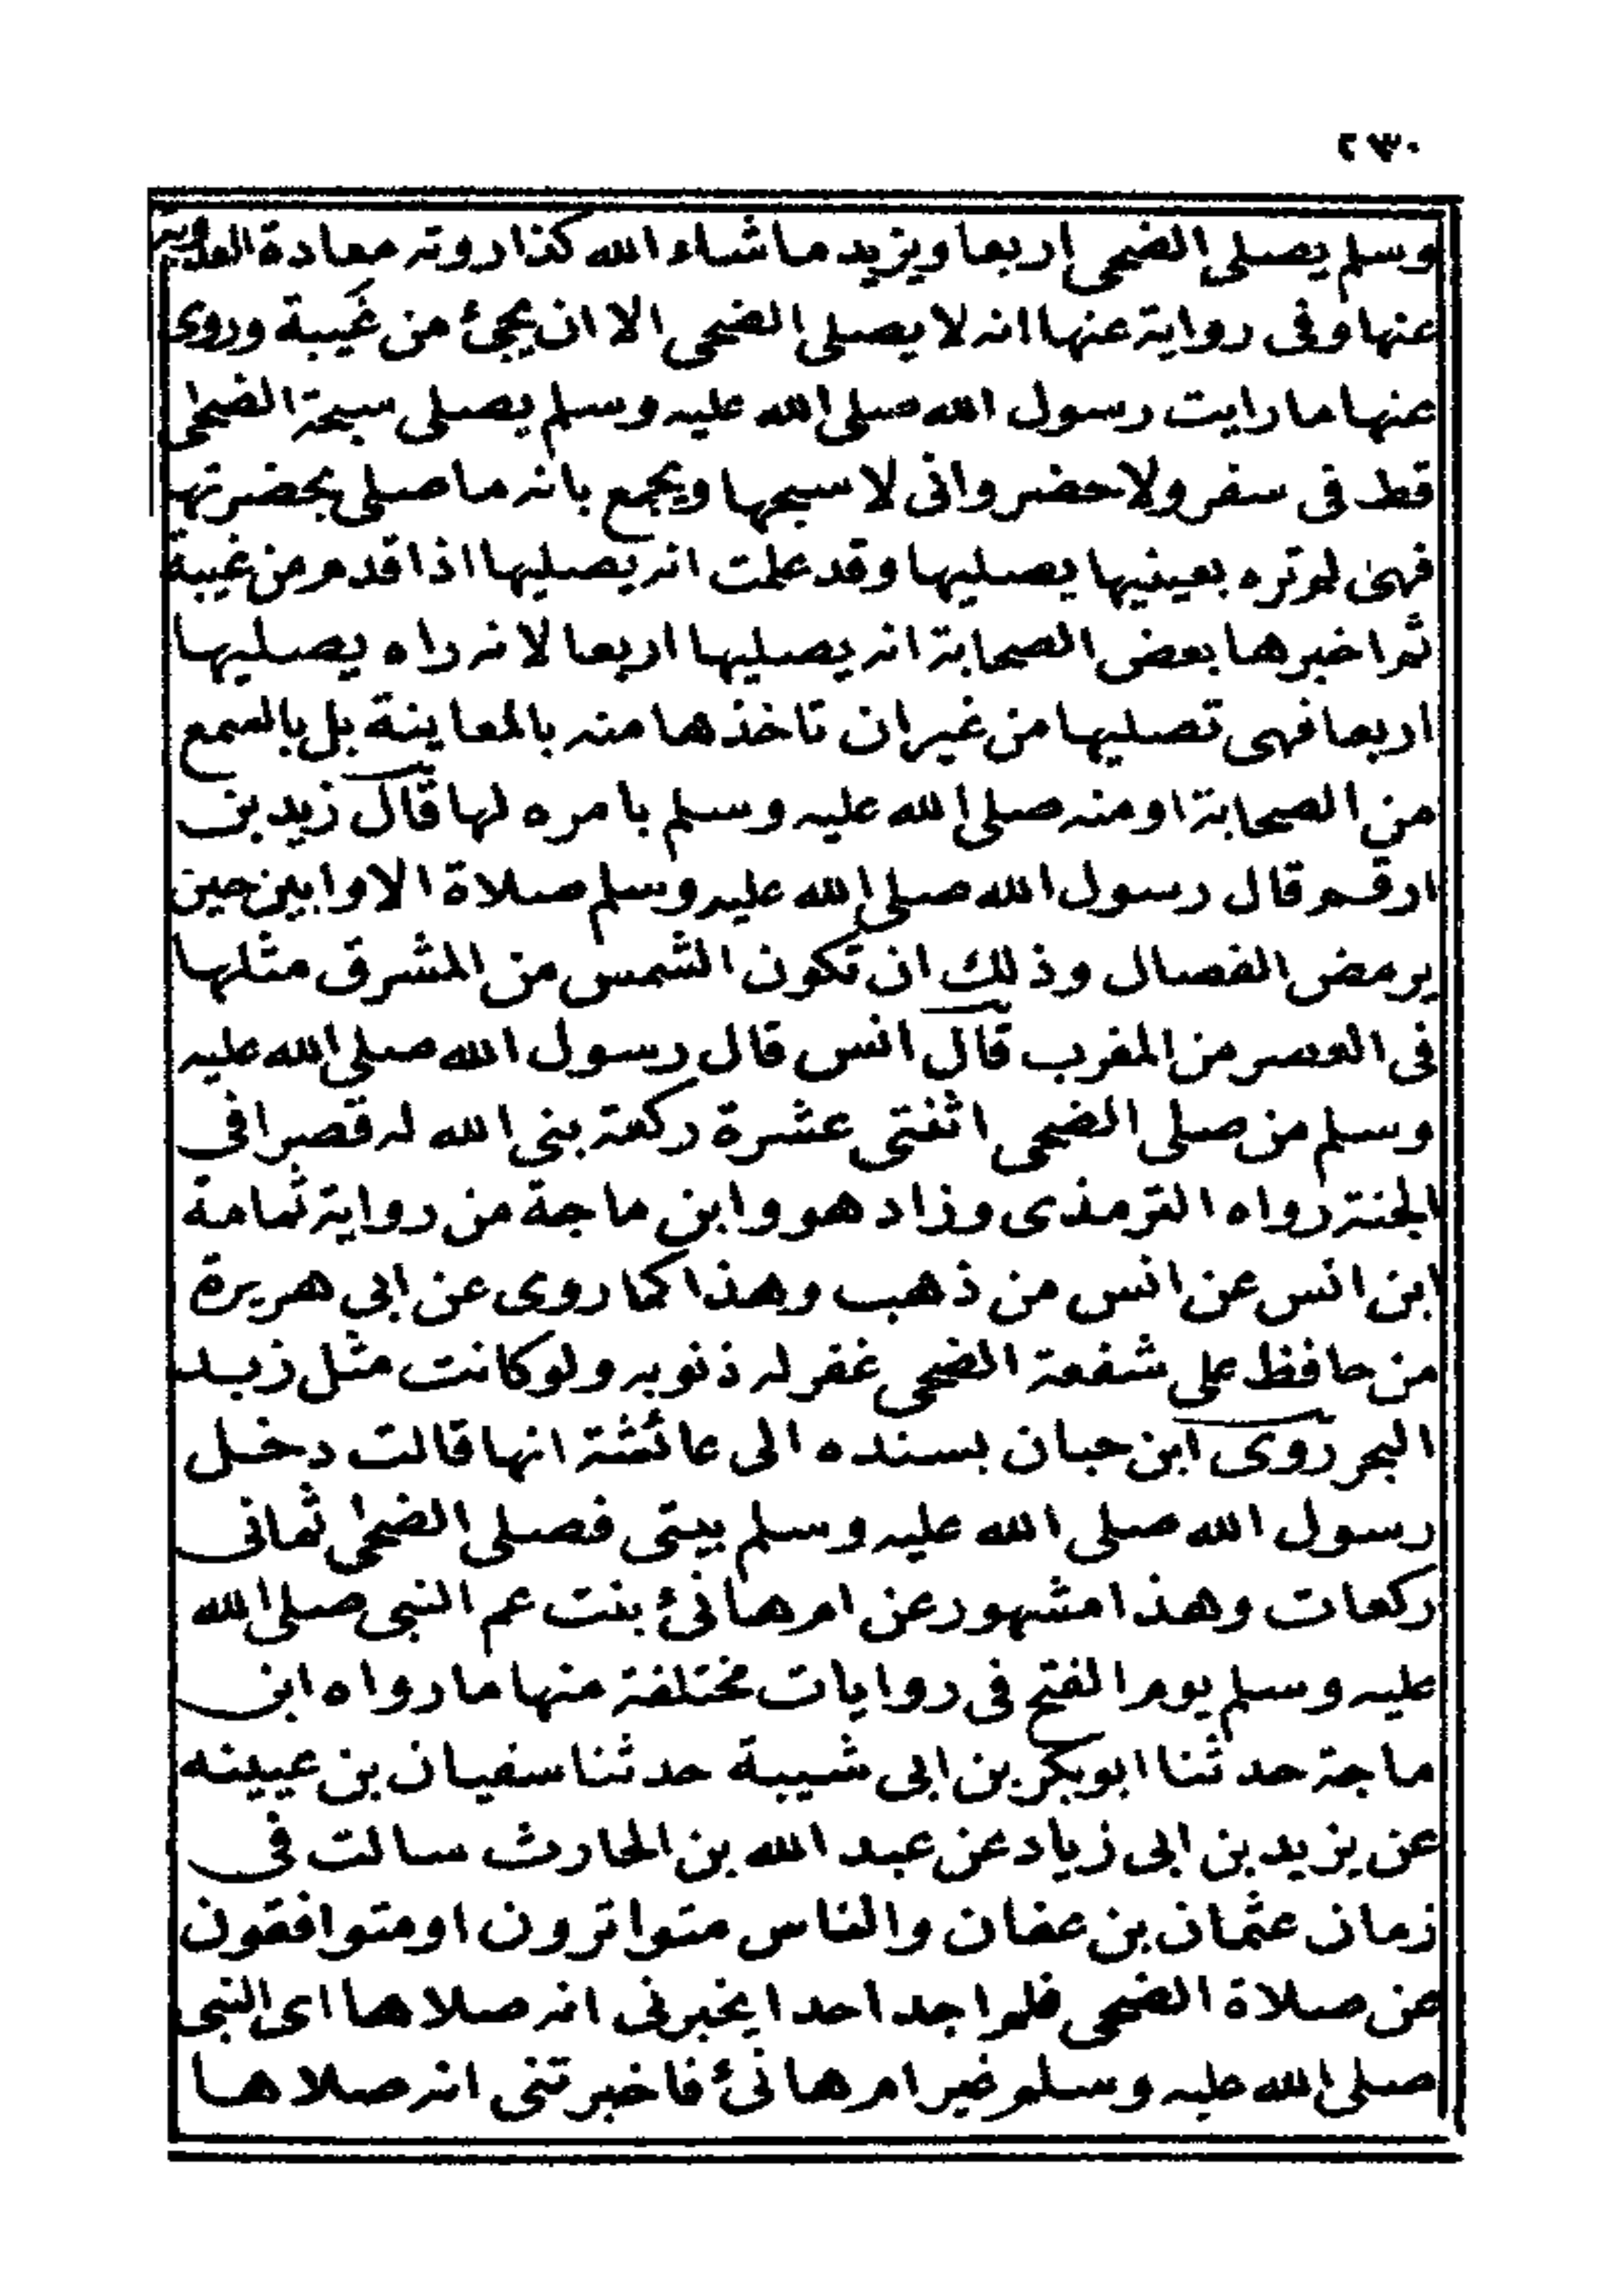 ٢٣٠
وسلم يصلى الضحى اربعا ويزيد ما شاء الله كذا روته معادة العدوية
عنها وفى رواية عنها انه لا يصلى الضحى الا ان يجئ من غَيبة وروى
عنها ما رايت رسول الله صلى الله عليه وسلم يصلى سبحة الضحى
قط فى سفر ولا حضر وانى لا سبحها ويجمع بانه ما صلى بحضرتها
فهى لم تره بعينيها يصليها وقد علمت انه يصليها اذا قدم من غيبة
ثم اخبرها بعض الصحابة انه يصليها اربعا لانه راه يصليها
اربعا فهى تصليها من غير ان تاخذها منه بالمعاينة بل بالسمع
من الصحابة او منه صلى الله عليه وسلم بامره لها قال زيد بن
ارقم قال رسول الله صلى الله عليه وسلم صلاة الاوابين حين
يرمض الفصال وذلك ان تكون الشمس من المشرق مثلها
فى العصر من المغرب قال انس قال رسول الله صلى الله عليه
وسلم من صلى الضحى اثنتى عشرة ركعة بنى الله له قصرا فى
الجنة رواه الترمذى وزاد هو وابن ماجة من رواية ثمامة
ابن انس عن انس من ذهب وهذا كما روى عن ابى هريرة
من حافظ على شفعة الضحى غفر له ذنوبه ولو كانت مثل زبد
البحر روى ابن حبان بسنده الى عائشة انها قالت دخل
رسول الله صلى الله عليه وسلم بيتى فصلى الضحى ثمانى
ركعات وهذا مشهور عن ام هانئ بنت عم النبى صلى الله
عليه وسلم يوم الفتح فى روايات مختلفة منها ما رواه ابن
ماجة حدثنا ابو بكر بن ابى شيبة حدثنا سفيان بن عيينه
عن يزيد بن ابى زياد عن عبد الله بن الحارث سالت فى
زمان عثمان بن عفان والناس متواترون او متوافقون
عن صلاة الضحى فلم اجد احدا يخبرنى انه صلاها اى النبى
صلى الله عليه وسلم غير ام هانئ فاخبرتنى انه صلاها